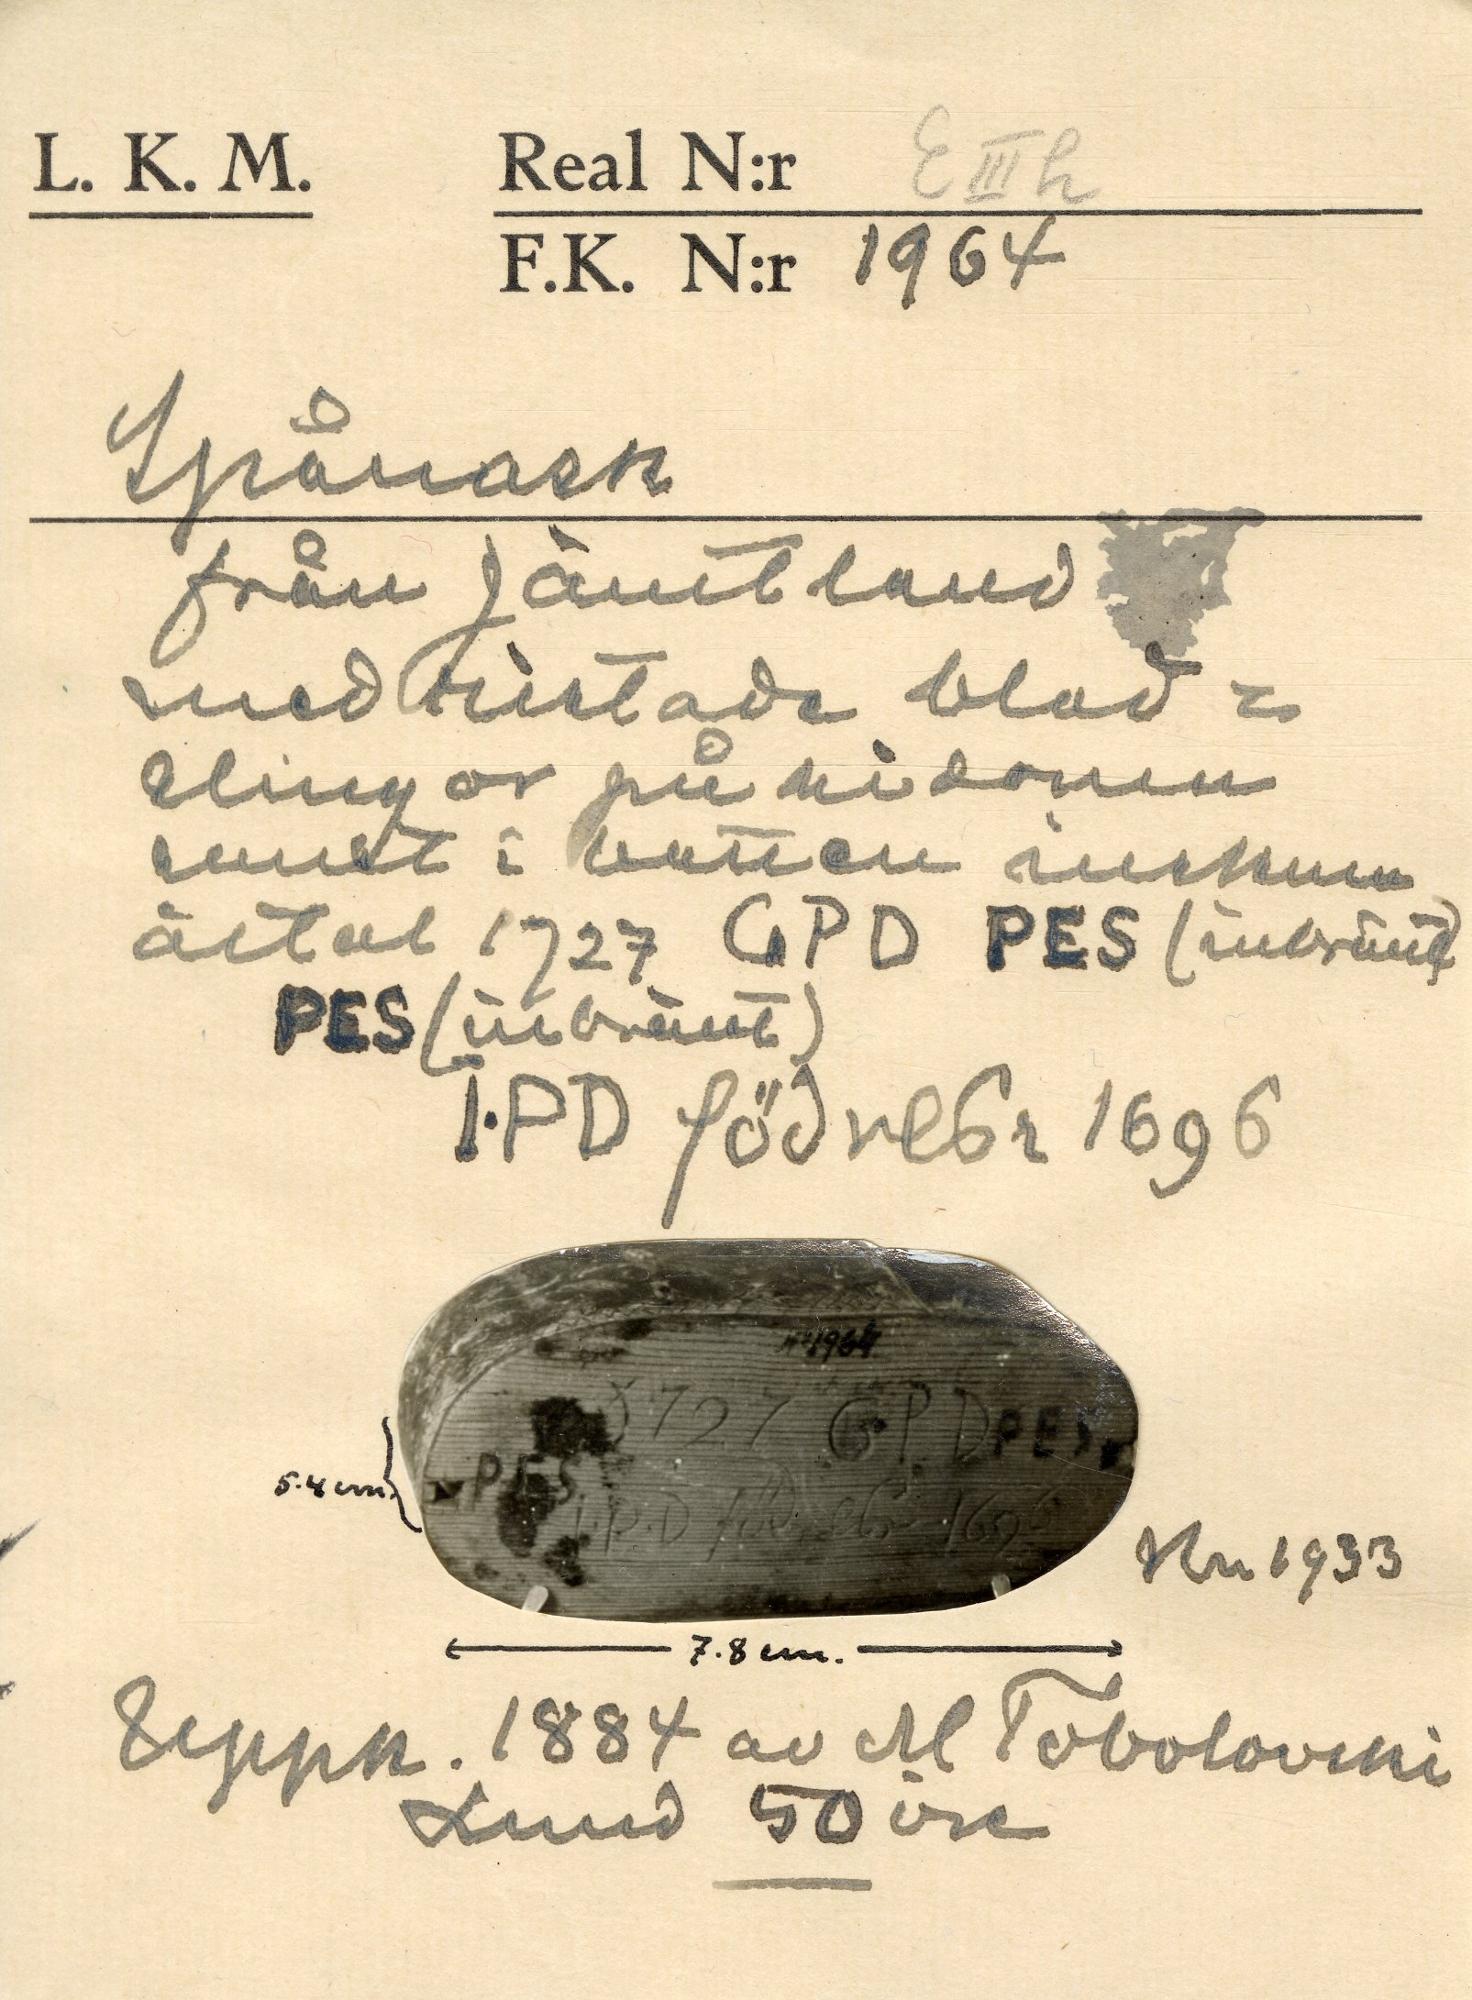 L. K. M. Real N:r E III h
F.K. N:r 1964
Spånask
från Jämtland
med ristade blad=
slingor på sidorna
samt i botten
årtal 1727 GPD PES (inbränt)
PES (inbränt)
I.PD född 1696
1964
1727 GPD PES
PES
I.P.D född 1696
5.4 cm.
1933
7.8 cm.
Uppk. 1884 av M Tobolovski
Lund 50 öre